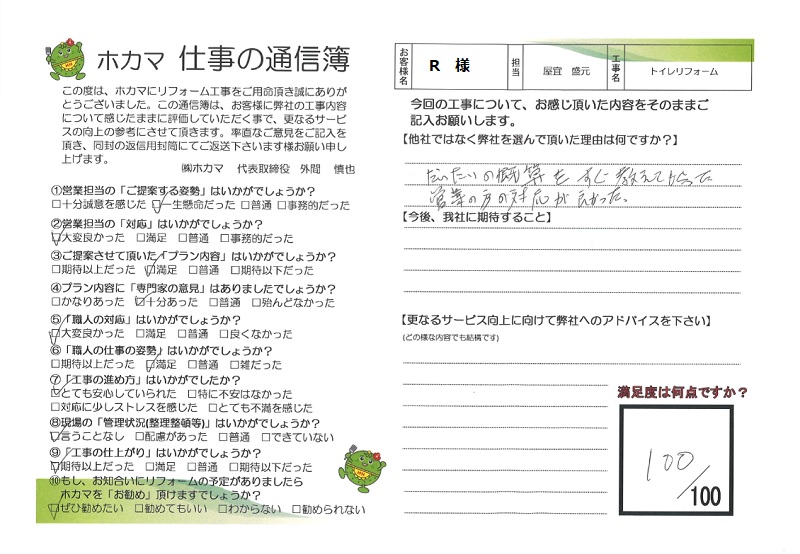 ホカマ 仕事の通信簿
この度は、ホカマにリフォーム工事をご用命頂き誠にありが
とうございました。この通信簿は、お客様に弊社の工事内容
について感じたままに評価していただく事で、更なるサービ
スの向上の参考にさせて頂きます。率直なご意見をご記入を
頂き、同封の返信用封筒にてご返送下さいます様お願い申
し上げます。
㈱ホカマ 代表取締役 外間 慎也
①営業担当の「ご提案する姿勢」はいかがでしょうか？
□十分誠意を感じた □一生懸命だった □普通 □事務的だった
②営業担当の「対応」はいかがでしょうか？
□大変良かった □満足 □普通 □事務的だった
③ご提案させて頂いた「プラン内容」はいかがでしょうか？
□期待以上だった □満足 □普通 □期待以下だった
④プラン内容に「専門家の意見」はありましたでしょうか？
□かなりあった □十分あった □普通 □殆んどなかった
⑤「職人の対応」はいかがでしょうか？
□大変良かった □満足 □普通 □良くなかった
⑥「職人の仕事の姿勢」はいかがでしょうか？
□期待以上だった □満足 □普通 □雑だった
⑦「工事の進め方」はいかがでしたか？
□とても安心していられた □特に不安はなかった
□対応に少しストレスを感じた □とても不満を感じた
⑧現場の「管理状況(整理整頓等)」はいかがでしょうか？
□言うことなし □配慮があった □普通 □できていない
⑨「工事の仕上がり」はいかがでしょうか？
□期待以上だった □満足 □普通 □期待以下だった
⑩もし、お知合いにリフォームの予定がありましたら
ホカマを「お勧め」頂けますでしょうか？
□ぜひ勧めたい □勧めてもいい □わからない □勧められない
お客様名 R 様 担当 屋宜 盛元 工事名 トイレリフォーム
今回の工事について、お感じ頂いた内容をそのままご
記入お願いします。
【他社ではなく弊社を選んで頂いた理由は何ですか？】
だいたいの概算をすぐ教えてもらった
営業の方の対応が良かった。
【今後、我社に期待すること】
【更なるサービス向上に向けて弊社へのアドバイスを下さい】
(どの様な内容でも結構です)
満足度は何点ですか？
100/100